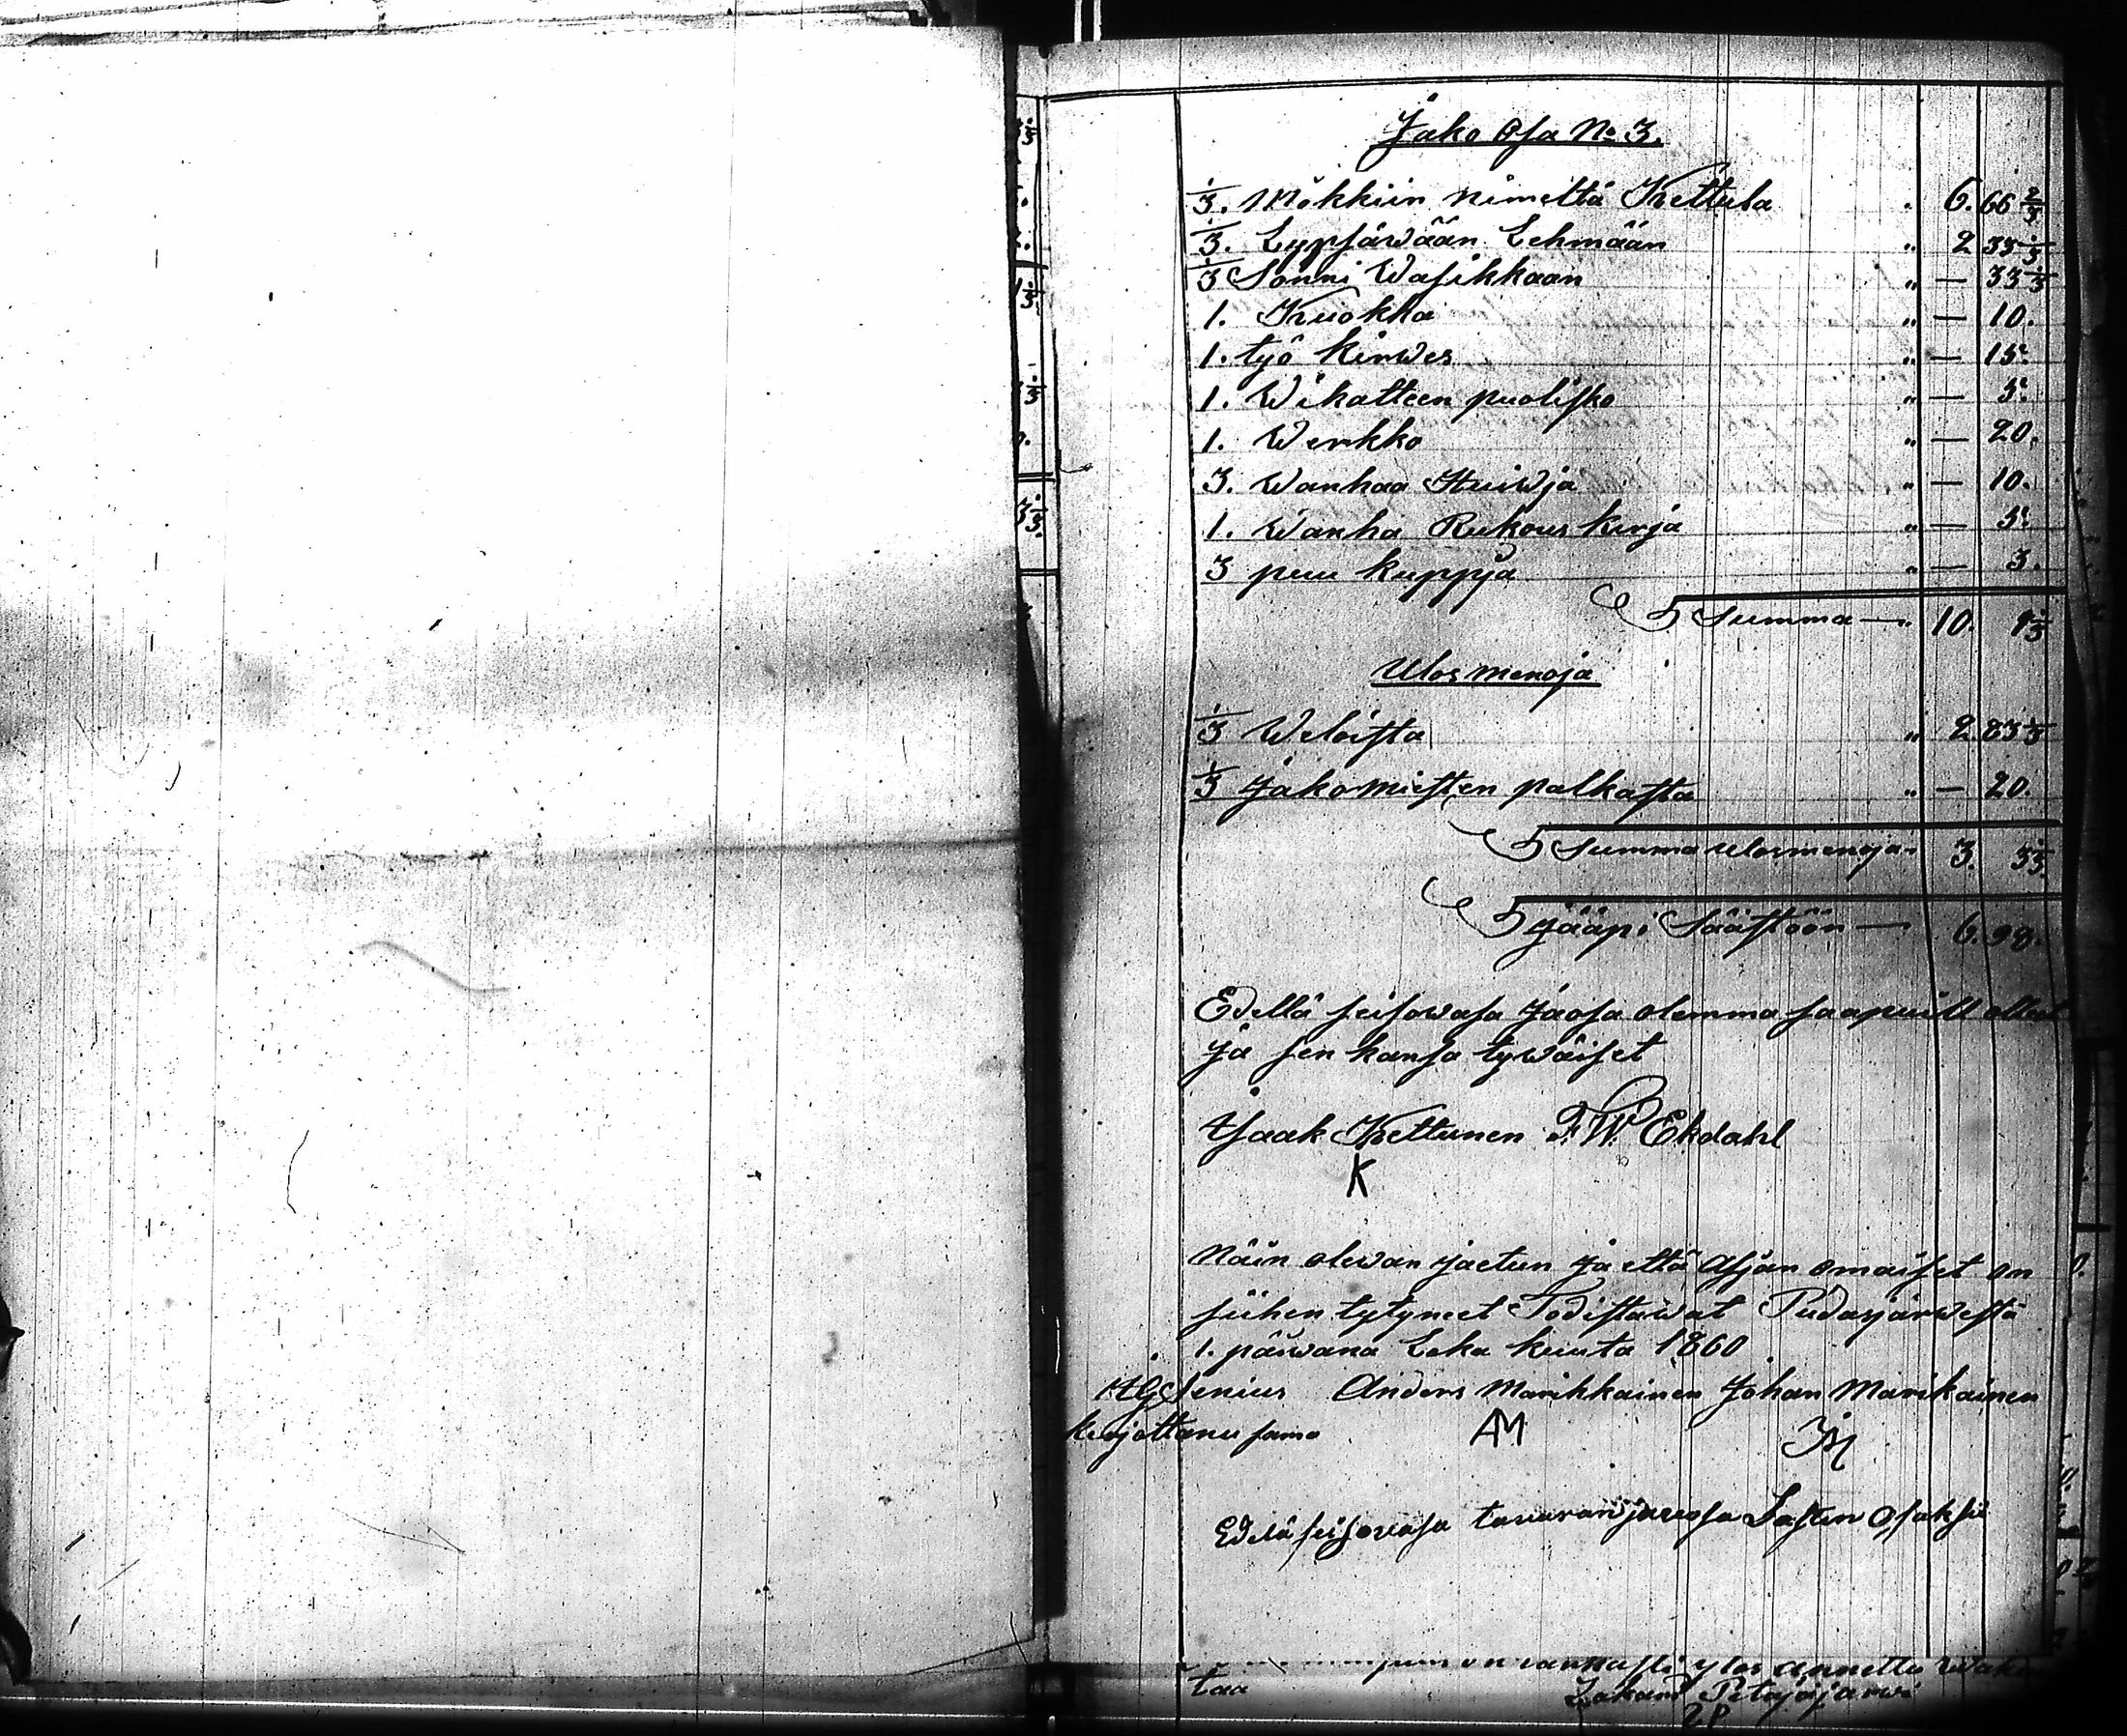 Jako Osa No 3.
1/3. Mökkiin nimeltä Kettula " 6. 66 2/3
1/3. Lypsäwään Lehmään " 2 33 1/3
1/3 Sonni Wasikkaan " — 33 1/3
1. Kuokka " — 10.
1. työ kirwes " — 15.
1. Wikatteen puolisko " — 5.
1. Werkko " — 20.
3. Wanhaa Huiwja " — 10.
1. Wanha Rukous kirja " — 5.
3 puu kuppja " — 3.
Summa — " 10. 1 1/3
Ulos menoja
1/3 Weloista " 2. 83 1/3
1/3 Jako miesten palkasta " — 20.
Summa ulosmenoja " 3. 3 1/3.
Jääpi Säästöön — 6. 98.
Edellä seisowasa Jaosa olemma saapuill ollut
ja sen kansa tywäiset
Isaak Kettunen F. W. Ekdahl
K
Näin olewan jaetun ja että Asjan omaiset on
siihen tytyneet Todistawat Pudasjärwestä
1. päiwänä Loka kuuta 1860
Anders Marikkainen Johan Marikainen
kirjottanu
AM JM
Edelä seisovasa tavaran jaosa Lasten Osaksi
on ulos annettu
taa Petäjäjärwi